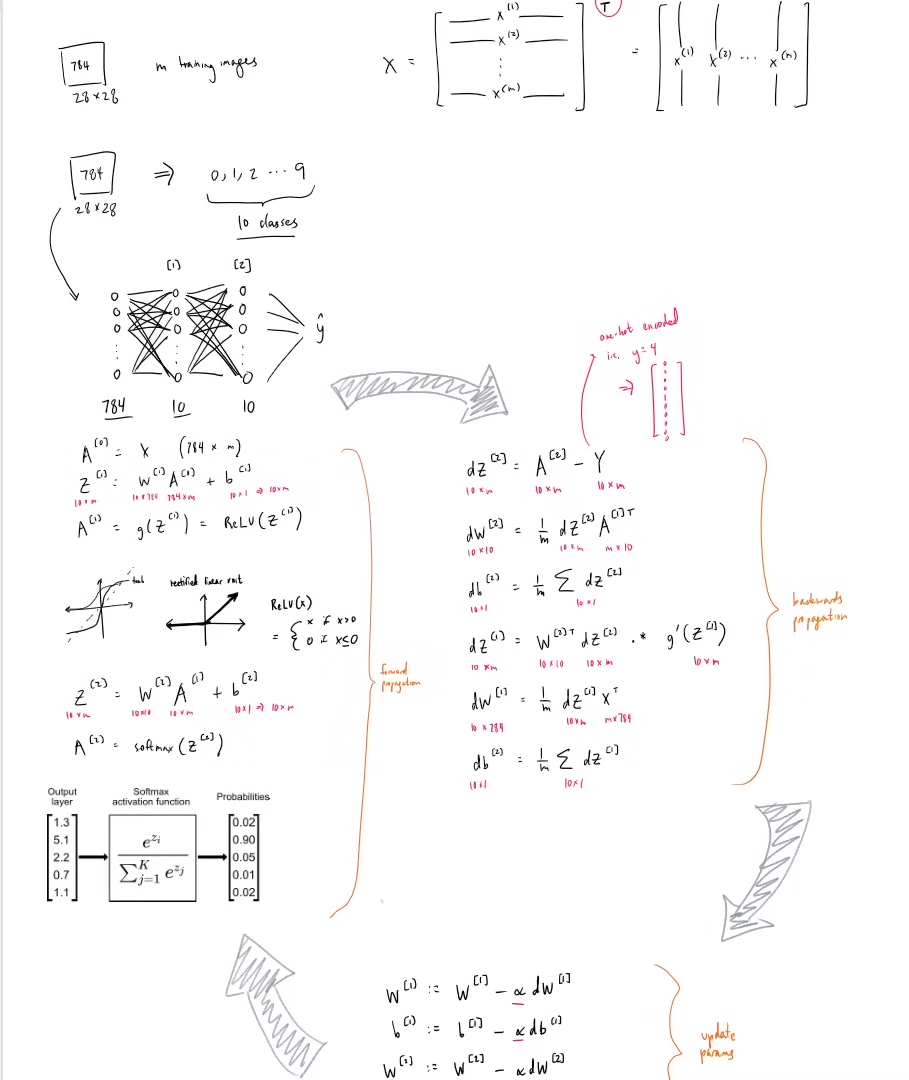 784
28×28
m training images
X = [ x^(1) x^(2) ⋮ x^(m) ]^T = [ x^(1) x^(2) ... x^(m) ]
784 ⇒ 0, 1, 2 ... 9
28×28
10 classes
[1] [2]
ŷ
784 10 10
A^[0] = X (784 × m)
Z^[1] = W^[1] A^[0] + b^[1]
10×m 10×784 784×m 10×1 ⇒ 10×m
A^[1] = g(Z^[1]) = ReLU(Z^[1])
tanh
rectified linear unit
ReLU(x)
= { x if x>0
0 if x≤0
Z^[2] = W^[2] A^[1] + b^[2]
10×m 10×10 10×m 10×1 ⇒ 10×m
A^[2] = softmax(Z^[2])
forward
propagation
Output
layer
Softmax
activation function
Probabilities
1.3
5.1
2.2
0.7
1.1
e^{z_i}
∑_{j=1}^{K} e^{z_j}
0.02
0.90
0.05
0.01
0.02
one-hot encoded
i.e. y=4
⇒ [ 0 0 0 0 1 0 0 0 0 0 ]
dZ^[2] = A^[2] − Y
10×m 10×m 10×m
dW^[2] = 1/m dZ^[2] A^[1]T
10×10 10×m m×10
db^[2] = 1/m Σ dZ^[2]
10×1 10×1
dZ^[1] = W^[2]T dZ^[2] .* g'(Z^[1])
10×m 10×10 10×m 10×m
dW^[1] = 1/m dZ^[1] X^T
10×784 10×m m×784
db^[2] = 1/m Σ dZ^[1]
10×1 10×1
backwards
propagation
W^[1] := W^[1] − α dW^[1]
b^[1] := b^[1] − α db^[1]
W^[2] := W^[2] − α dW^[2]
update
params